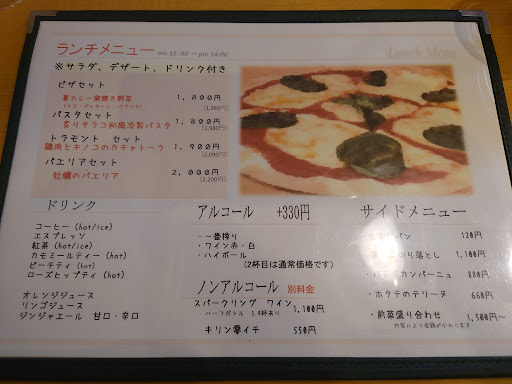 ランチメニュー am 11:30 ～ pm 14:00
Lunch Menu
※サラダ、デザート、ドリンク付き
ピザセット
夏カレー窯焼き野菜 1,800円
(1,980円)
パスタセット
炙りタラコ和風冷製パスタ 1,800円
(1,980円)
トラモント セット
鶏肉とキノコのカチャトーラ 1,900円
(2,090円)
パエリアセット
牡蠣のパエリア 2,000円
(2,200円)
ドリンク
コーヒー (hot/ice)
エスプレッソ
紅茶 (hot/ice)
カモミールティー (hot)
ピーチティ (hot)
ローズヒップティ (hot)
オレンジジュース
リンゴジュース
ジンジャエール 甘口・辛口
アルコール +330円
・一番搾り
・ワイン赤・白
・ハイボール
(2杯目は通常価格です)
ノンアルコール 別料金
スパークリング ワイン
ハーフボトル 1,100円
キリン零イチ 550円
サイドメニュー
パン 120円
切り落とし 1,100円
カンパーニュ 880円
・ホタテのテリーヌ 660円
・前菜盛り合わせ 1,500円～
内容により金額がかわります